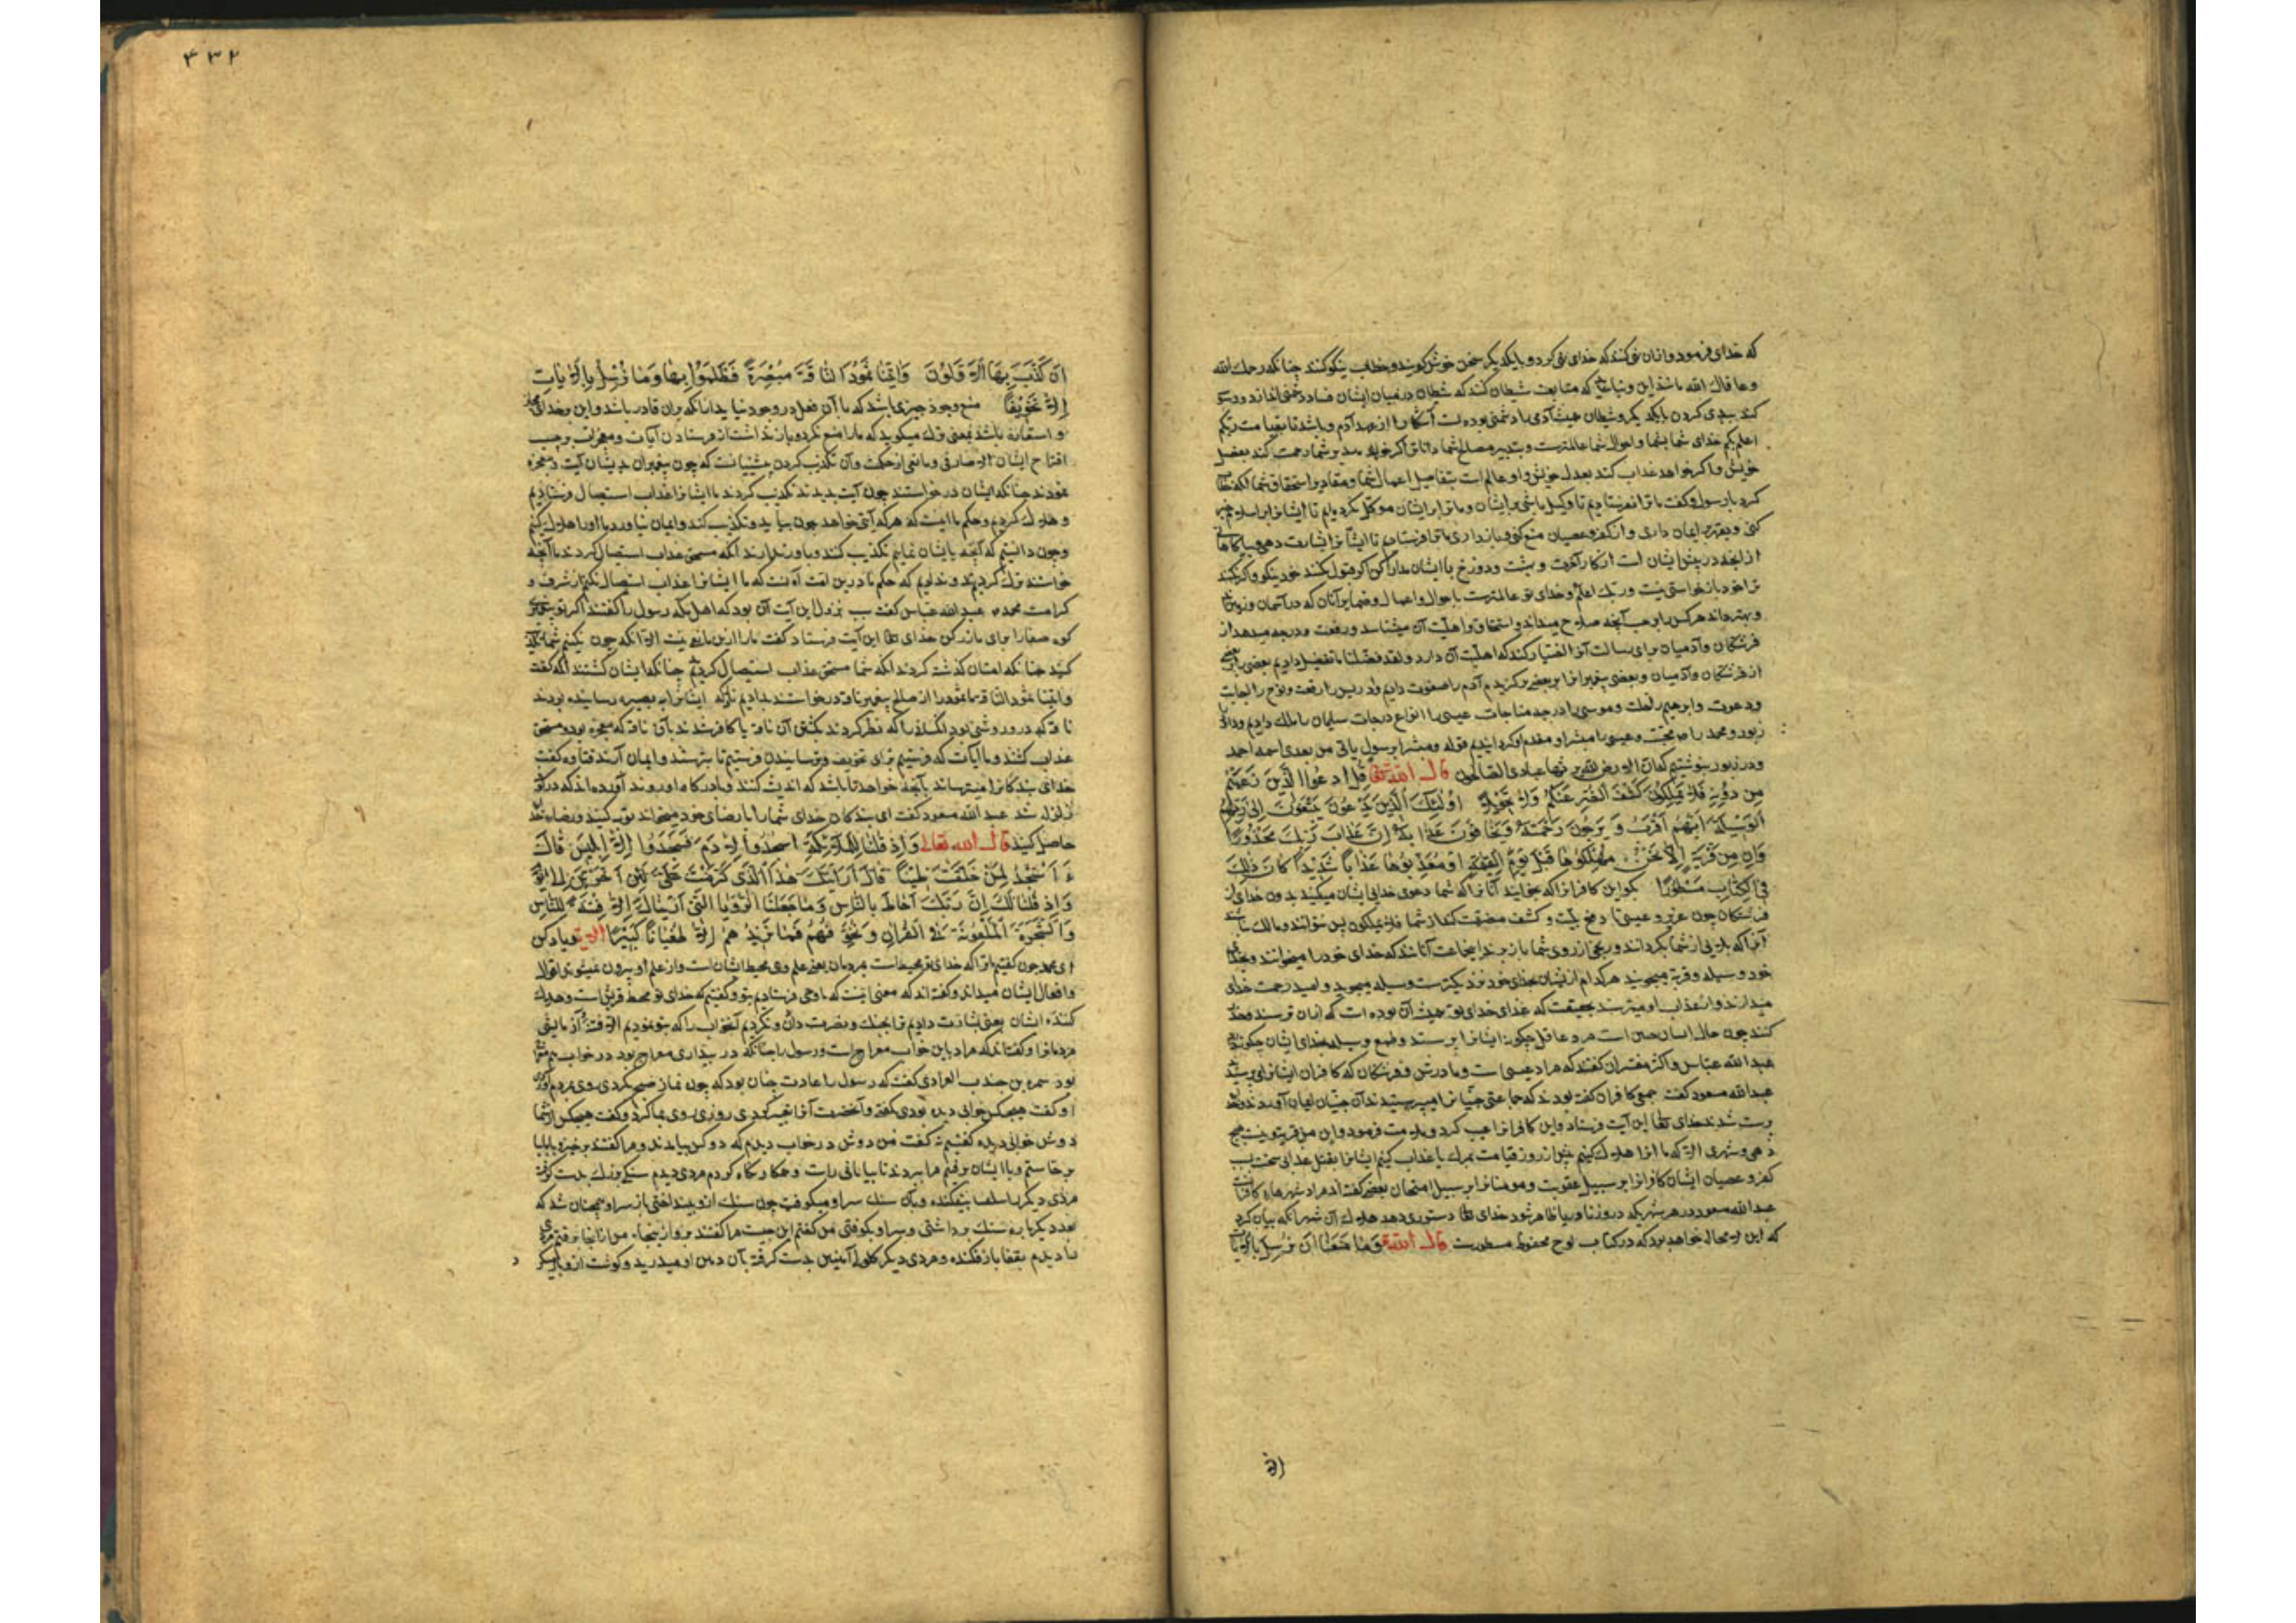 که خدای فرمود و انان نمی کنند که خدای نهی کرد و با یکدیگر سخن خوش گویند و خطاب نیکو کنند چنانکه رحمك الله
کند بدی کردن با یکدیگر و شیطان همیشه آدمی را دشمنی بوده است آشکارا از عهد آدم و باشد تا بقیامت ربکم
اعلم بکم خدای شما بشما و احوال شما عالمترست و بتدبیر مصالح شما داناتر اگر خواهد
خویش و اگر خواهد عذاب کند بعدل خویش و او عالم است بتفاصیل اعمال شما و مقادیر استحقاق شما
کرد با رسول و گفت ما ترا نفرستادیم تا وکیل باشی بر ایشان و ما ترا بر ایشان موکل نکرده ایم تا ایشانرا بر اسلام
کنی و بقهر بر ایمان داری و از کفر و عصیان منع کنی و باز داری ما ترا فرستادیم تا ایشانرا بشارت دهی
از آنچه در پیش ایشان است از کار آخرت و بهشت و دوزخ با ایشان مدارا کن اگر قبول کنند خود نیکو و اگر نکنند
ترا خود بازخواستی نیست و ربك اعلم و خدای تو عالمترست باحوال و اعمال و ضمایر آنان که در آسمان و زمین
و بهتر داند هر کس را و حسب آنچه صلاح میداند و استحقاق و اهلیت آن میشناسد و رفعت و درجه میدهد از
فرشتگان و آدمیان برای رسالت آنرا اختیار کند که اهلیت آن دارد و لقد فضلنا ما تفضیل دادیم بعضی را
از فرشتگان و آدمیان و بعضی پیغمبرانرا بر بعضی برگزیدیم آدم را صفوت دادیم و ادریس را رفعت و نوح را اجابت
و دعوت و ابرهیم را خلت و موسی را درجه مناجات عیسی را انواع درجات سلیمان را ملك دادیم و داود
زبور و محمد را محبت و عیسی را مبشر او مقدم او گردانیدیم قوله و مبشرا برسول یاتی من بعدی اسمه احمد
و در زبور بنوشتیم که ان الارض لله یرثها عبادی الصالحون قال الله تعالی قُلِ ادْعُوا الَّذِینَ زَعَمْتُمْ
مِنْ دُونِهِ فَلَا یَمْلِکُونَ کَشْفَ الضُّرِّ عَنْکُمْ وَلَا تَحْوِیلًا اُولٰئِكَ الَّذِینَ یَدْعُونَ یَبْتَغُونَ اِلیٰ رَبِّهِمُ
الْوَسِیلَةَ اَیُّهُمْ اَقْرَبُ وَیَرْجُونَ رَحْمَتَهُ وَیَخَافُونَ عَذَابَهُ اِنَّ عَذَابَ رَبِّكَ کَانَ مَحْذُورًا
وَاِنْ مِنْ قَرْیَةٍ اِلَّا نَحْنُ مُهْلِکُوهَا قَبْلَ یَوْمِ الْقِیٰمَةِ اَوْ مُعَذِّبُوهَا عَذَابًا شَدِیدًا کَانَ ذٰلِكَ
فِی الْکِتَابِ مَسْطُورًا بگو این کافرانرا که بخوانید آنانرا که شما دعوی خدایی ایشان میکنید بدون خدای از
فرشتگان چون عزیر و عیسی تا دفع بلیت و کشف مضرت کند از شما فلا یملکون پس نتوانند و مالك نباشند
آنرا که بلایی از شما بگردانند و رنجی از روی شما باز برند این جماعت آنانند که خدای خود را میخوانند
خود وسیله و قربة میجویند هر کدام از ایشان بخدای خود نزدیکترست وسیله میجوید و امید رحمت خدای
میدارند و از عذاب او میترسند بحقیقت که عذاب خدای تو همیشه آن بوده است که از آن ترسند و حذر
کنند چون حال ایشان چنین است مرد عاقل چگونه ایشانرا پرستد و طمع وسیله بخدای ایشان چگونه
عبدالله عباس و اکثر مفسران گفتند که مراد عیسی است و مادرش و فرشتگان که کافران ایشانرا می پرستیدند
عبدالله مسعود گفت جمعی کافران گفته بودند که جماعتی جنیانرا میپرستیدند آن جنیان ایمان آوردند
پرست شدند خدای تعا این آیت فرستاد و این کافرانرا عیب کرد و ملامت فرمود و ان من قریة نیست هیچ
دهی و شهری الا که ما انرا هلاك کنیم پیش از روز قیامت بمرك یا عذاب کنیم ایشانرا بقتل عذابی سخت بسبب
کفر و عصیان ایشان کافرانرا بر سبیل عقوبت و مومنانرا بر سبیل امتحان بعضی گفته اند مراد شهرهاء کافرانست
عبدالله مسعود در هر شهریکه در و زنا و ربا ظاهر شود خدای تعا دستوری دهد هلاك آن شهر آنکه بیان کرد
که این لا محاله خواهد بود که در کتاب لوح محفوظ مسطورست قال الله تع وَمَا مَنَعَنَا اَنْ نُرْسِلَ بِالْآیَاتِ
۴۳۲
اَنْ کَذَّبَ بِهَا الْاَوَّلُونَ وَاٰتَیْنَا ثَمُودَ النَّاقَةَ مُبْصِرَةً فَظَلَمُوا بِهَا وَمَا نُرْسِلُ بِالْآیَاتِ
اِلَّا تَخْوِیفًا منع وجود چیزی باشد که با آن فعل در وجود نیاید از آنکه بران قادر باشد و این بر خدای
و استعاره باشد یعنی ترك میگوید که ما را منع نکرد و باز نداشت از فرستادن آیات و معجزات بر حسب
اقتراح ایشان الا صارفی و مانعی از حکمت و آن تکذیب کردن پیشینیانست که چون پیغمبران بدیشان آیت و معجزه
نمودند چنانکه ایشان درخواستند چون آیت بدیدند تکذیب کردند ما ایشانرا عذاب استیصال فرستادیم
و هلاك کردیم و حکم ما اینست که هر که آیتی خواهد چون بیاید و تکذیب کند و ایمان نیاورد ما او را هلاك کنیم
و چون دانستیم که آنچه بایشان نمایم تکذیب کنند و باور ندارند آنکه مستحق عذاب استیصال گردند ما آنچه
خواستند ترك کردیم که حکم ما درین امت آنست که ما ایشانرا عذاب استیصال نکنیم از شرف و
کرامت محمد عبدالله عباس گفت سبب نزول این آیت آن بود که اهل مکه رسول را گفتند اگر تو پیغمبری
کوه صفا را برای ما زر کن خدای تعا این آیت فرستاد گفت ما را ازین مانعی نیست الا آنکه چون بکنیم شما تکذیب
کنید چنانکه امتان گذشته کردند آنکه شما مستحق عذاب استیصال گردید چنانکه ایشان گشتند آنکه گفت
و اتینا ثمود الناقة ما ثمود را از صالح پیغمبر ناقه درخواستند بدادیم
ناقه که در و روشنی بود آنکسانرا که نظر کردند بکشتن آن ناقه یا کافر شدند بآن ناقه که معجزه بود و مستحق
عذاب گشتند و ما آیات که فرستیم برای تخویف و ترسانیدن فرستیم تا بترسند و ایمان آرند قتاده گفت
خدای بندگانرا میترساند بآنچه خواهد تا باشد که اندیشه کنند و با درگاه او روند آورده اند که در کوفه
زلزله شد عبدالله مسعود گفت ای بندگان خدای شما را با رضای خود میخواند توبه کنید و رضاء خدا
حاصل کنید قال الله تعالی وَاِذْ قُلْنَا لِلْمَلَائِکَةِ اسْجُدُوا لِاٰدَمَ فَسَجَدُوا اِلَّا اِبْلِیسَ قَالَ
ءَاَسْجُدُ لِمَنْ خَلَقْتَ طِینًا قَالَ اَرَاَیْتَكَ هٰذَا الَّذِی کَرَّمْتَ عَلَیَّ لَئِنْ اَخَّرْتَنِ اِلیٰ
وَاِذْ قُلْنَا لَكَ اِنَّ رَبَّكَ اَحَاطَ بِالنَّاسِ وَمَا جَعَلْنَا الرُّؤْیَا الَّتِی اَرَیْنَاكَ اِلَّا فِتْنَةً لِلنَّاسِ
وَالشَّجَرَةَ الْمَلْعُونَةَ فِی الْقُرْاٰنِ وَنُخَوِّفُهُمْ فَمَا یَزِیدُهُمْ اِلَّا طُغْیَانًا کَبِیرًا الآیة یاد کن
ای محمد چون گفتیم ترا که خدای تو محیطست بمردمان یعنی علم وی محیط ایشان است و از علم او بیرون نمیشوند اقوال
و افعال ایشان میداند و گفته اند که معنی اینست که ما وحی فرستادیم بتو و گفتیم که خدای تو محیط قریش است و هلاك
کننده ایشان یعنی بشارت دادیم ترا بجنك و نصرت دادن و نکردیم آنخواب را که بتو نمودیم الا فتنه آزمایشی
مردمانرا و گفتند که مراد باین خواب معراج است و رسول را چنانکه در بیداری معراج بود در خواب هم
بود سمره بن جندب الفزاری گفت که رسول را عادت چنان بود که چون نماز صبح بکردی روی بمردم
او گفت هیچکس خوابی دیده بودی گفتی و آنحضرت آنرا تعبیر کردی روزی روی بما کرد و گفت هیچکس از شما
دوش خوابی دیده گفتیم نه گفت من دوش در خواب دیدم که دو کس بیامدند و مرا گفتند برخیز و با ما بیا
برخاستم و با ایشان برفتم مرا ببردند تا بیابانی راست و نگاه کردم مردی دیدم سنگی بزرك بدست گرفته
مردی دیگر را بقفا بیفکنده و بآن سنك سر او میکوفت چون سنك
بعد دیگر باره سنك برداشتی و سر او بکوفتی من گفتم این چیست مرا گفتند برو از اینجا من از آنجا برفتم مردی
را دیدم بقفا باز فکنده و مردی دیگر کلوبی آهنین بدست گرفته بآن دهن او میدرید و گوشت